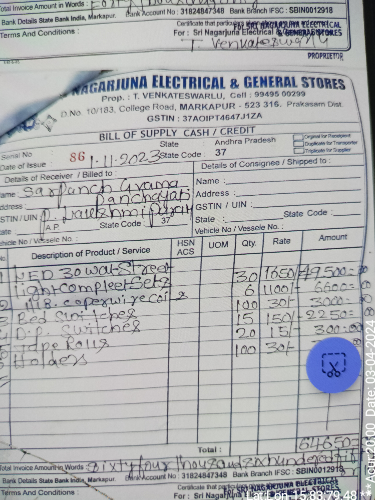 Total Invoice Amount in Words :
Bank Details State Bank India, Markapur. Bank Account No : 31824847348 Bank Branch IFSC : SBIN0012918
Terms And Conditions :
Certificate that particu
SRI NAGARJUNA ELECTRICAL
For : Sri Nagarjuna Electrical & GENERAL STORES
T. Venkateswarlu
PROPRIETOR
NAGARJUNA ELECTRICAL & GENERAL STORES
Prop. : T. VENKATESWARLU, Cell : 99495 00299
D.No. 10/183, College Road, MARKAPUR - 523 316. Prakasam Dist.
GSTIN : 37AOIPT4647J1ZA
BILL OF SUPPLY CASH / CREDIT
Serial No 86
State Andhra Pradesh
Original for Receipient
Duplicate for Transporter
Triplicate for Supplier
Date of Issue : 1-11-2023 State Code : 37
Details of Receiver / Billed to :
Details of Consignee / Shipped to :
Name Sarpanch Grama
Name :
Address Panchayati
Address :
GSTIN / UIN P. Lakshmi Puram
GSTIN / UIN :
State A.P. State Code : 37
State : State Code :
Vehicle No / Vessele No. :
Vehicle No / Vessele No. :
No. Description of Product / Service HSN ACS UOM Qty. Rate Amount
1 LED 30 wat Street 30 1650/- 49500=00
Light compleet Sets 6 1100/- 6600=00
2 coper wire coils 100 30/- 3000=00
3 Bed Switches 15 150/- 2250=
4 D.P. Switches 20 15/- 300=00
5 Tape Rolls 100 30/-
6 Holders
Total : 64650=
Total Invoice Amount in Words : Sixty four thousand six hundred fifty
Bank Details State Bank India, Markapur. Bank Account No : 31824847348 Bank Branch IFSC : SBIN0012918
Terms And Conditions
Certificate that particu
SRI NAGARJUNA ELECTRICAL
For : Sri Nagar
GENERAL STORES
Date: 03-04-2024